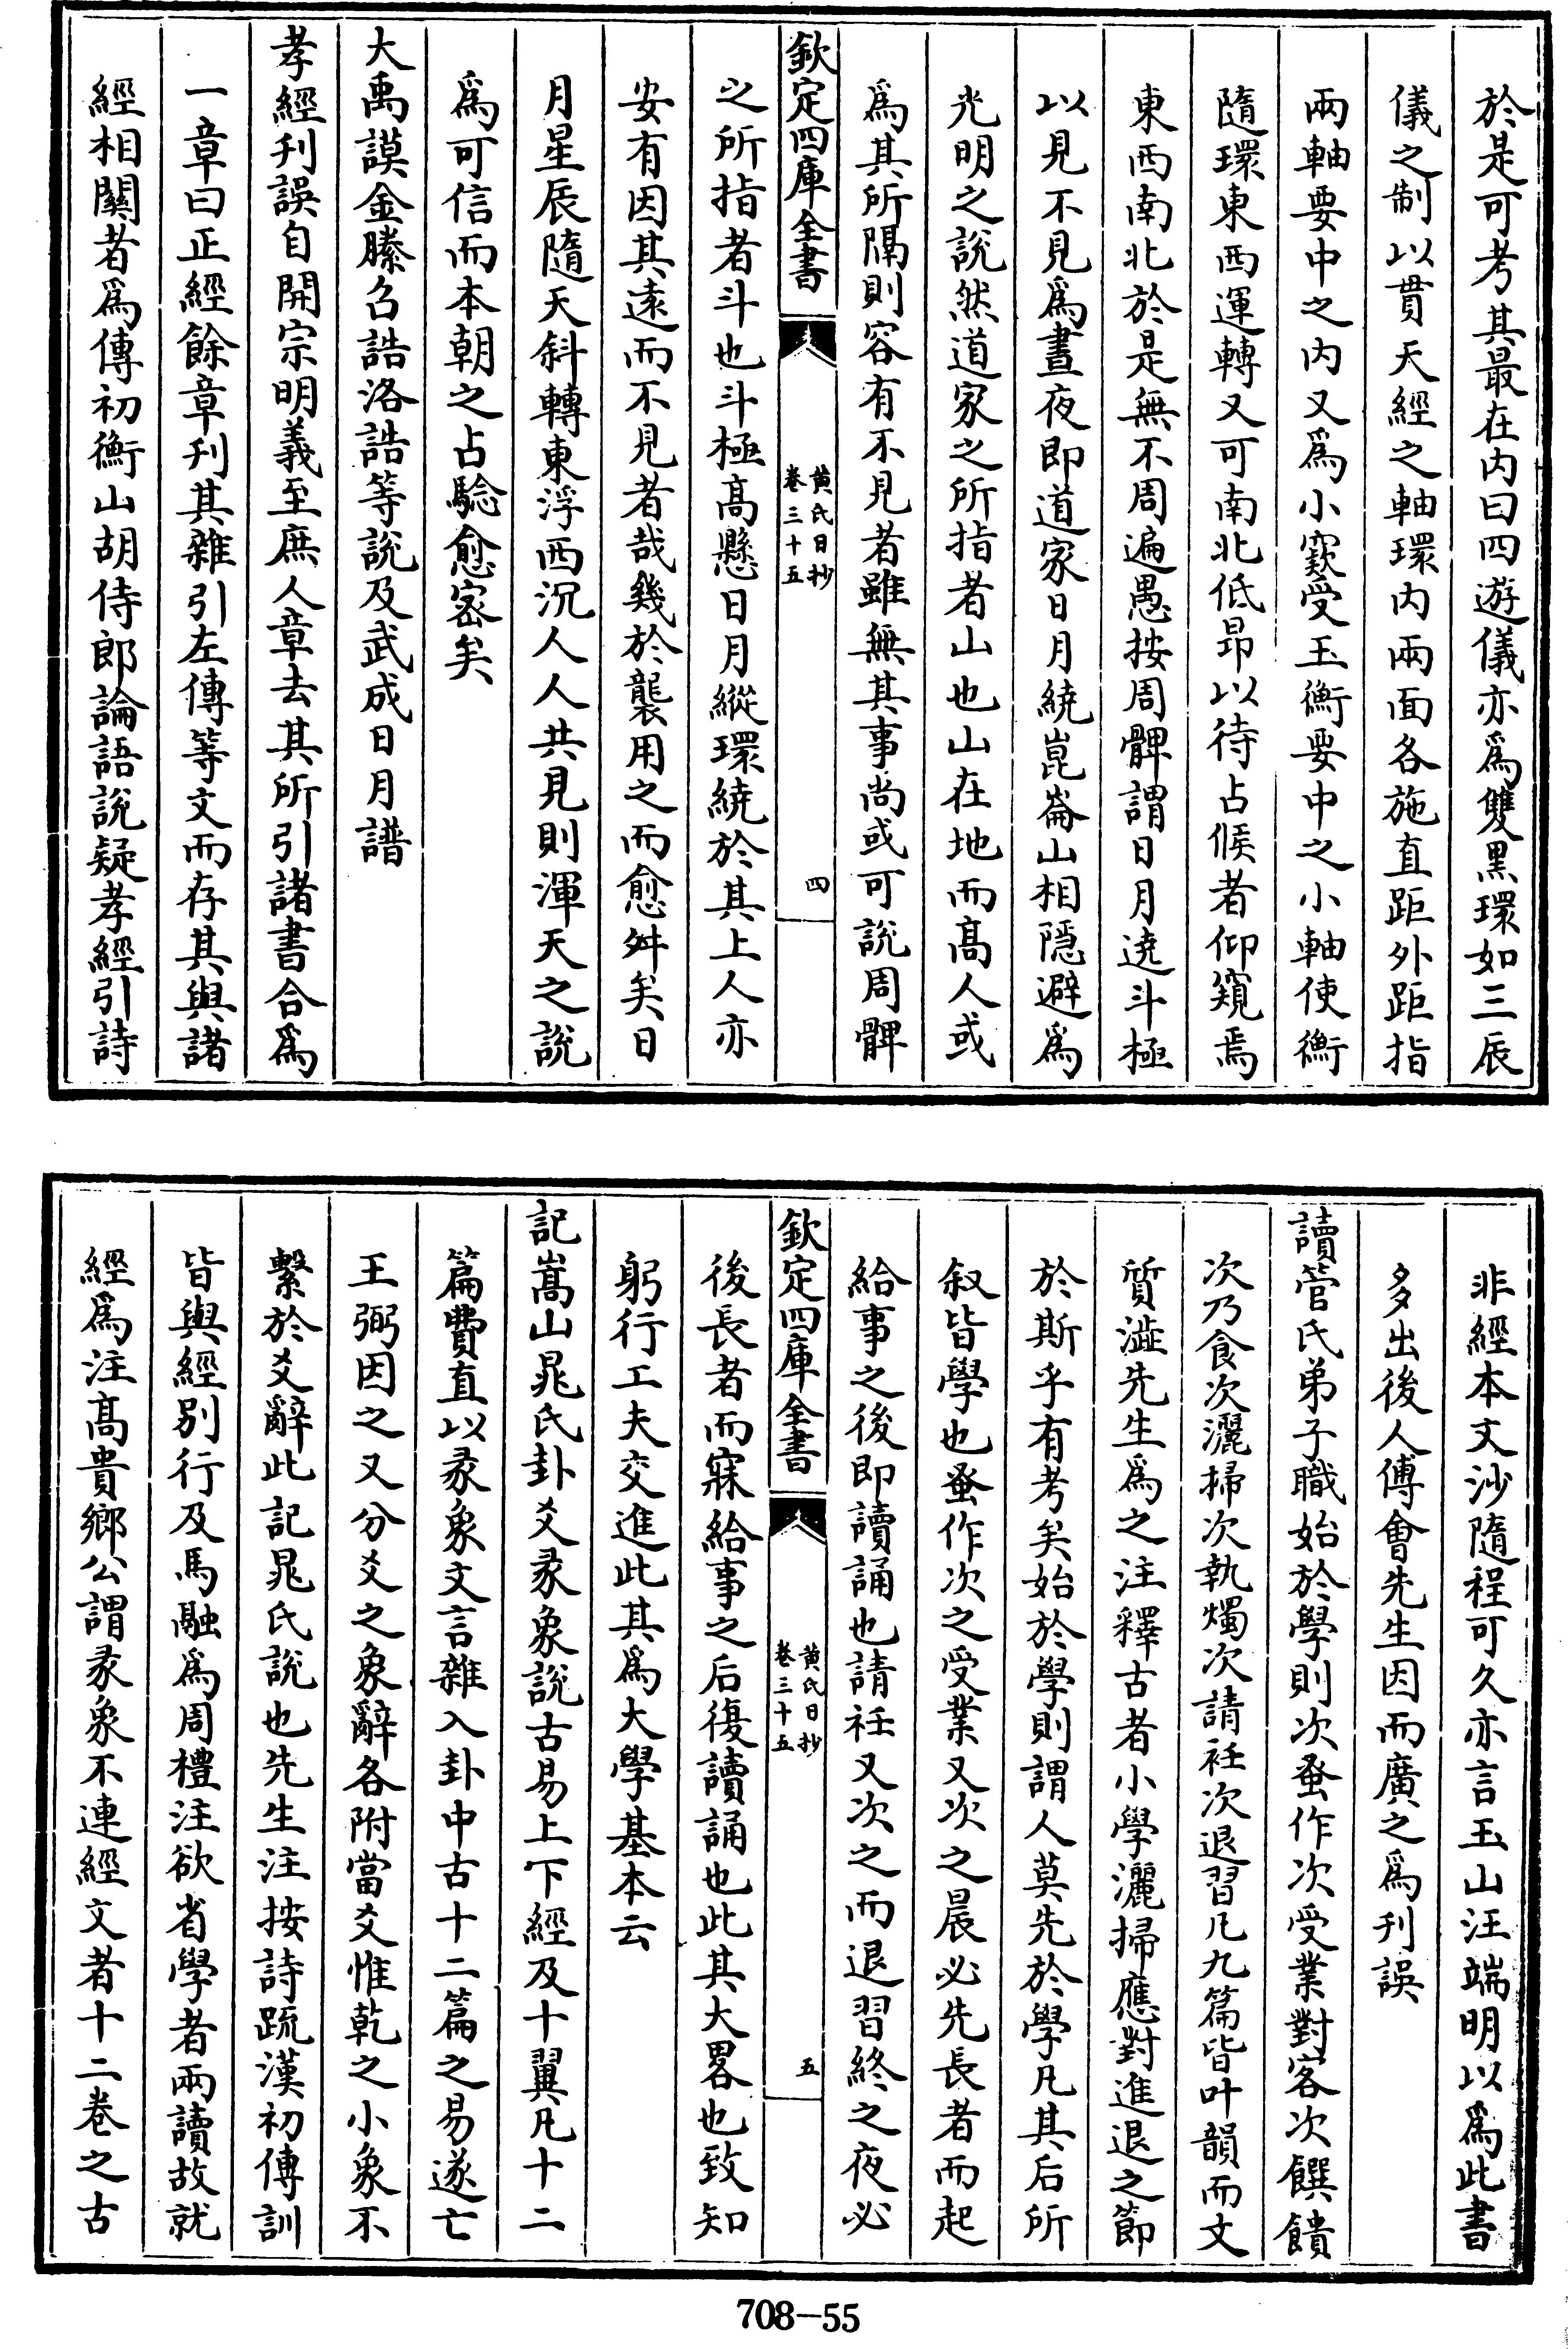 於是可考其最在内曰四遊儀亦爲雙黑環如三辰
儀之制以貫天經之軸環内兩面各施直距外距指
兩軸要中之内又爲小窽受玉衡要中之小軸使衡
隨環東西運轉又可南北低昻以待占候者仰窺焉
東西南北於是無不周遍愚按周髀謂日月遶斗極
以見不見爲晝夜即道家日月繞崑崙山相隱避爲
光明之説然道家之所指者山也山在地而髙人或
爲其所隔則容有不見者雖無其事尚或可説周髀
欽定四庫全書
黄氏日抄
卷三十五
四
之所指者斗也斗極髙懸日月縱環繞於其上人亦
安有因其逺而不見者哉幾於襲用之而愈舛矣日
月星辰隨天斜轉東浮西沉人人共見則渾天之説
爲可信而本朝之占驗愈宻矣
大禹謨金縢召誥洛誥等説及武成日月譜
孝經刋誤自開宗明義至庶人章去其所引諸書合爲
一章曰正經餘章刋其雜引左傳等文而存其與諸
經相關者爲傳初衡山胡侍郎論語説疑孝經引詩
非經本文沙隨程可久亦言玉山汪端明以爲此書
多出後人傅會先生因而廣之爲刋誤
讀管氏弟子職始於學則次蚤作次受業對客次饌饋
次乃食次灑掃次執燭次請衽次退習凡九篇皆叶韻而文
質澁先生爲之注釋古者小學灑掃應對進退之節
於斯乎有考矣始於學則謂人莫先於學凡其后所
叙皆學也蚤作次之受業又次之晨必先長者而起
給事之後即讀誦也請衽又次之而退習終之夜必
欽定四庫全書
黄氏日抄
卷三十五
五
後長者而寐給事之后復讀誦也此其大畧也致知
躬行工夫交進此其爲大學基本云
記嵩山晁氏卦爻彖象説古易上下經及十翼凡十二
篇費直以彖象文言雜入卦中古十二篇之易遂亡
王弼因之又分爻之象辭各附當爻惟乾之小象不
繫於爻辭此記晁氏説也先生注按詩疏漢初傳訓
皆與經别行及馬融爲周禮注欲省學者兩讀故就
經爲注髙貴鄉公謂彖象不連經文者十二卷之古
708-55